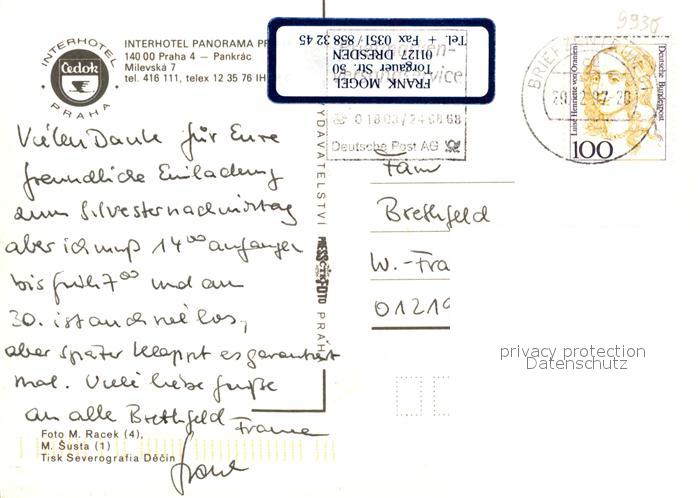 9930
INTERHOTEL
Čedok
PRAHA
INTERHOTEL PANORAMA PR
140 00 Praha 4 – Pankrác
Milevská 7
tel. 416 111, telex 12 35 76 IH
FRANK MOGEL
Torgauer Str. 50
01127 DRESDEN
Tel + Fax 0351 / 858 32 45
0 18 03 / 24 68 68
Deutsche Post AG
BRIEF
Luise Henriette von Oranien
Deutsche Bundespost
100
Vielen Dank für Eure
freundliche Einladung
zum Silvesternachmittag
aber ich muß 14 00 anfangen
bis früh 7 00 und am
30. ist auch viel los,
aber später klappt es garantiert
mal. Viele liebe Grüße
an alle Brethfeld
Frank
VYDAVATELSTVÍ
PRESSFOTO
PRAHA
Fam
Brethfeld
W.-Fra
01219
privacy protection
Datenschutz
Foto M. Racek (4),
M. Šusta (1)
Tisk Severografia Děčín